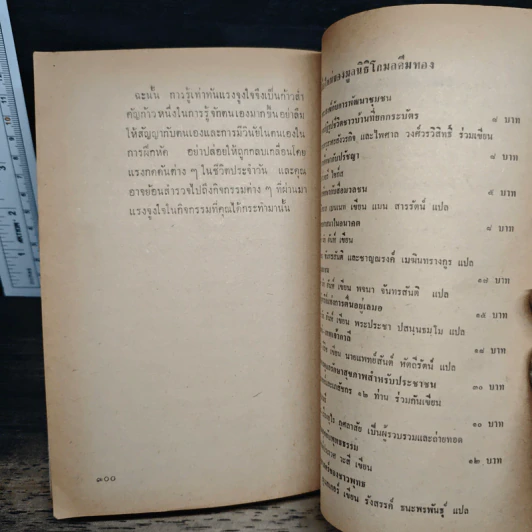 ฉะนั้น การรู้เท่าทันแรงจูงใจจึงเป็นก้าวสำ
คัญก้าวหนึ่งในการรู้จักตนเองมากขึ้นอย่าลืม
ให้สัญญากับตนเองและการมีวินัยในตนเองใน
การฝึกหัด อย่าปล่อยให้ถูกกลบเกลื่อนโดย
แรงกดดันต่าง ๆ ในชีวิตประจำวัน และคุณ
อาจย้อนสำรวจไปถึงกิจกรรมต่าง ๆ ที่ผ่านมา
แรงจูงใจในกิจกรรมที่คุณได้กระทำมานั้น
๑๐๐
ของมูลนิธิโกมลคีมทอง
กับการพัฒนาชุมชน
๘ บาท
และไพศาล วงศ์วรวิสิทธิ์ ร่วมเขียน
กับปรัชญา
๕ บาท
เขียน แบน สารรัตน์ แปล
๘ บาท
เขียน
และชาญณรงค์ เมฆินทรางกูร แปล
๑๗ บาท
เขียน พจนา จันทรสันติ แปล
แห่งการตื่นอยู่เสมอ
๑๕ บาท
เขียน พระประชา ปสนฺนธมฺโม แปล
๑๘ บาท
เขียน นายแพทย์สันต์ หัตถีรัตน์ แปล
รักษาสุขภาพสำหรับประชาชน
๓๐ บาท
และเภสัชกร ๑๒ ท่าน ร่วมกันเขียน
๑๐ บาท
กุศลาสัย เป็นผู้รวบรวมและถ่ายทอด
พุทธธรรม
๑๒ บาท
วะสี เขียน
ของชาวพุทธ
เขียน รังสรรค์ ธนะพรพันธุ์ แปล